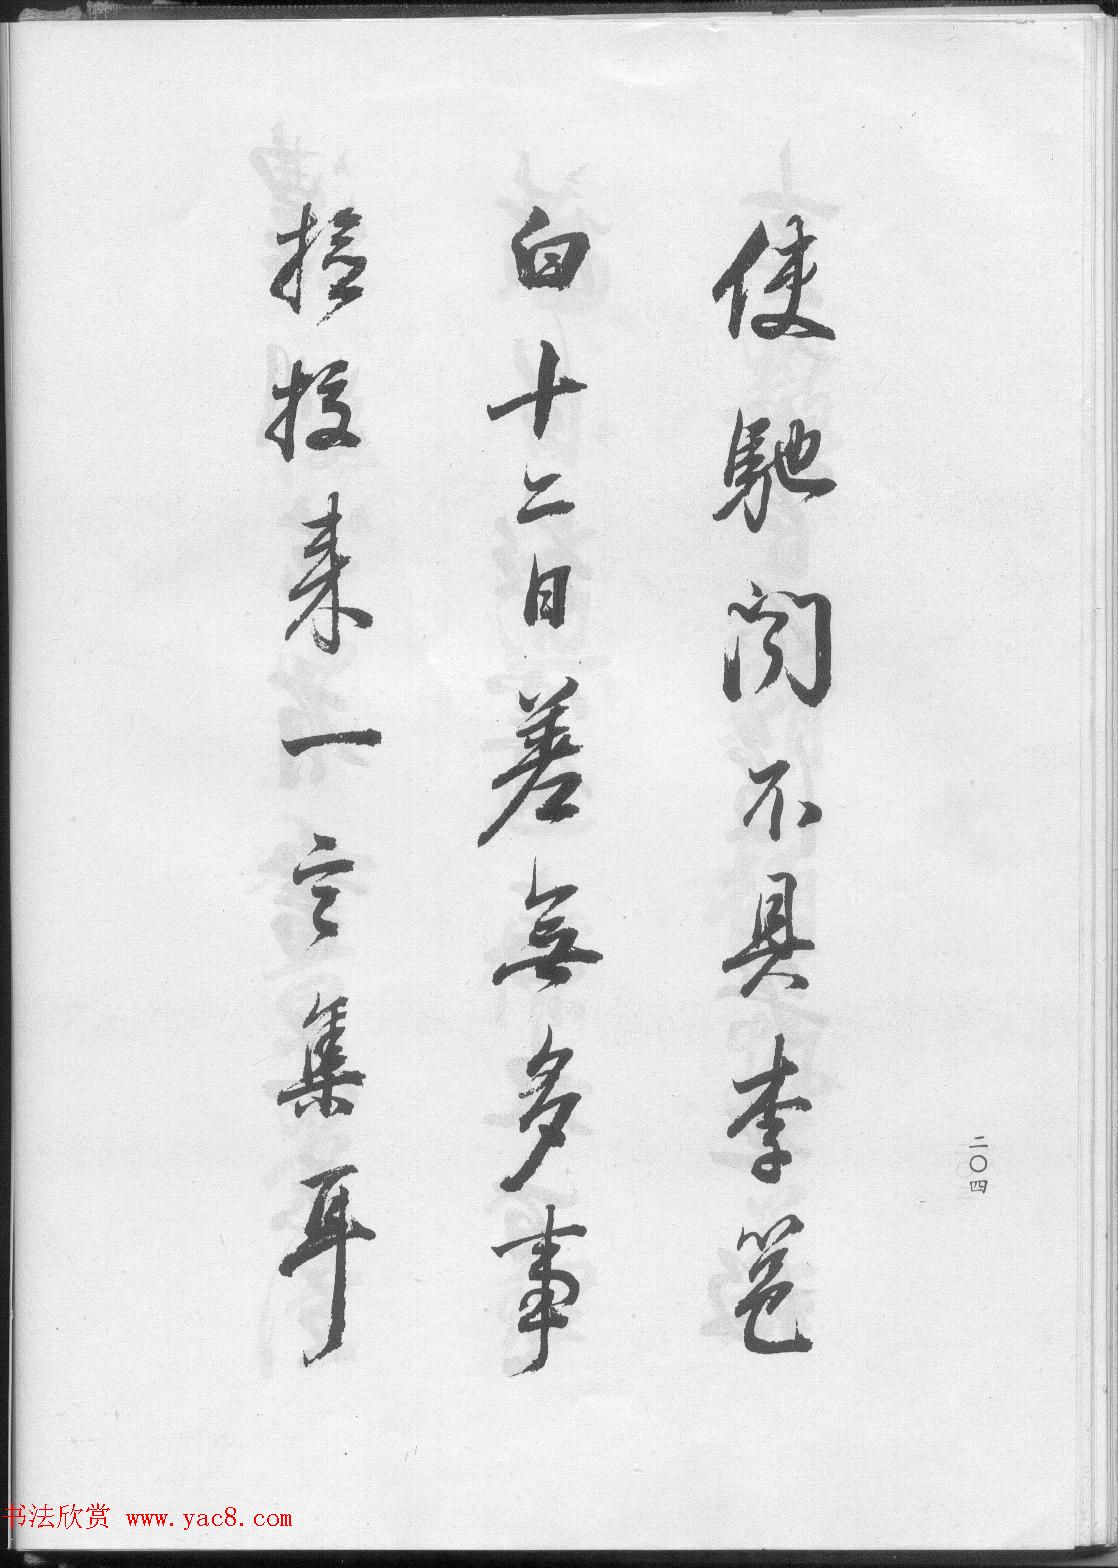 使馳問不具李邕
白十二日差無多事
撿挍来一言集耳
二〇四
书法欣赏 www.yac8.com